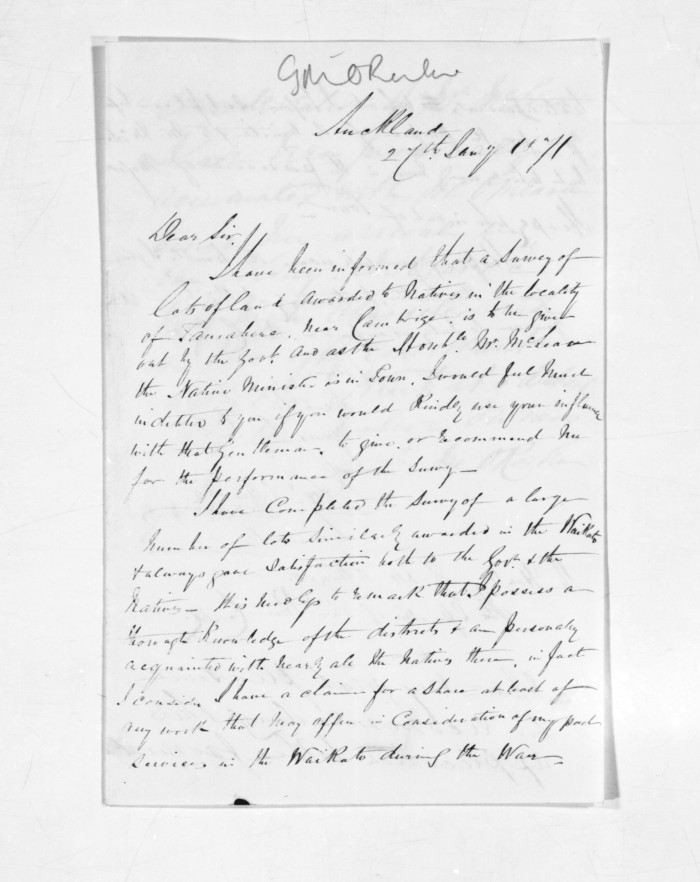 G M O'Rorke
Auckland
27th Jany 1871
Dear Sir.
I have been informed that a Survey of
lots of land awarded to Natives in the locality
of near Cambrige. is to be given
out by the Govt. And as the Honble. Mr. McLean
the Native Minister is in Town. I would feel Much
indebted to you if you would Kindly use your influence
with that Gentleman. to give. or recommend Me
for the performance of the Survey—
I have Completed the Survey of a large
Number of lots Similarly awarded in the Waikato
& always gave Satisfaction both to the Govt. & the
Natives— this to remark that I possess a
thorough Knowledge of the districts & am personally
acquainted with nearly all the Natives there. in fact
I consider I have a claim for a share at least of
any work that may offer in Consideration of my past
Services in the Waikato during the War—